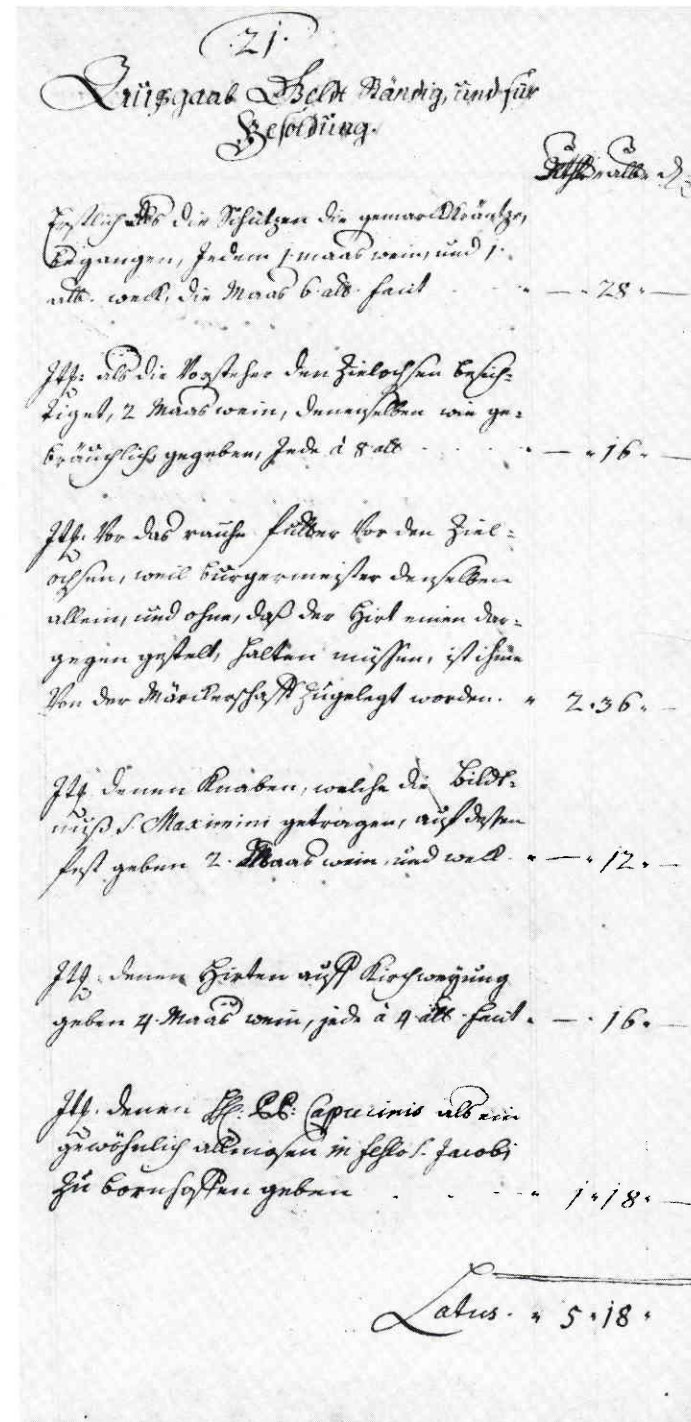 ·21·
Außgaab Geldt Ständig, und für
Besoldung.
Rthlr albs d
Erstlich als die Schützen die gemarck Kräntze,
begangen, Jedem 1 maas wein, und 1
alb. weck, die Maas 6 alb facit — 28 —
Itt: als die Vorsteher den Zielochsen besich-
tiget, 2 Maas wein, denenselben wie ge-
bräuchlich gegeben, Jede â 8 alb — 16 —
Itt. Vor das rauhe futter vor den Ziel-
ochsen, weil burgermeister denselben
allein, und ohne, daß der Hirt einen dar-
gegen gestelt, halten müssen, ist ihme
Von der Märckerschafft zugelegt worden. 2 · 36 —
Itt. denen Knaben, welche die Bildt-
nuß S. Maximini getragen, auff dessen
fest geben 2. Maas wein, und weck — 12 —
Itt. denen Hirten auff Kirchweyung
geben 4. Maas wein, jede â 4 alb facit — 16 —
Itt. denen HH. PP. Capucinis als ein
gewöhnlich allmosen in festo S. Jacobi
zu bornhoffen geben 1 · 18 —
Latus. 5 · 18